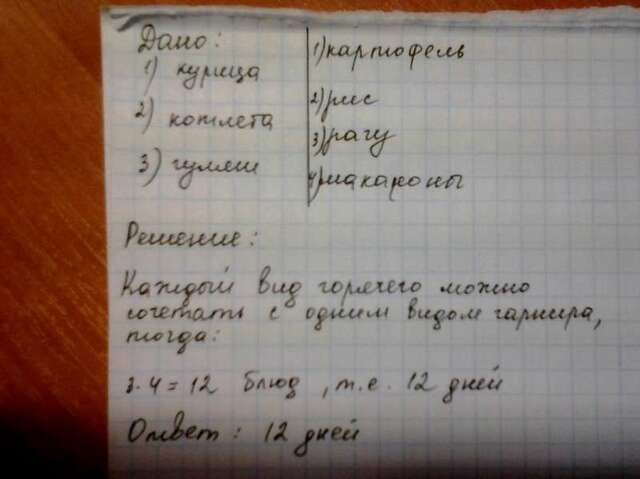 Дано:
1) курица
2) котлета
3) гуляш
1) картофель
2) рис
3) рагу
4) макароны
Решение:
Каждый вид горячего можно
сочетать с одним видом гарнира,
тогда:
3·4=12 блюд, т.е. 12 дней
Ответ: 12 дней